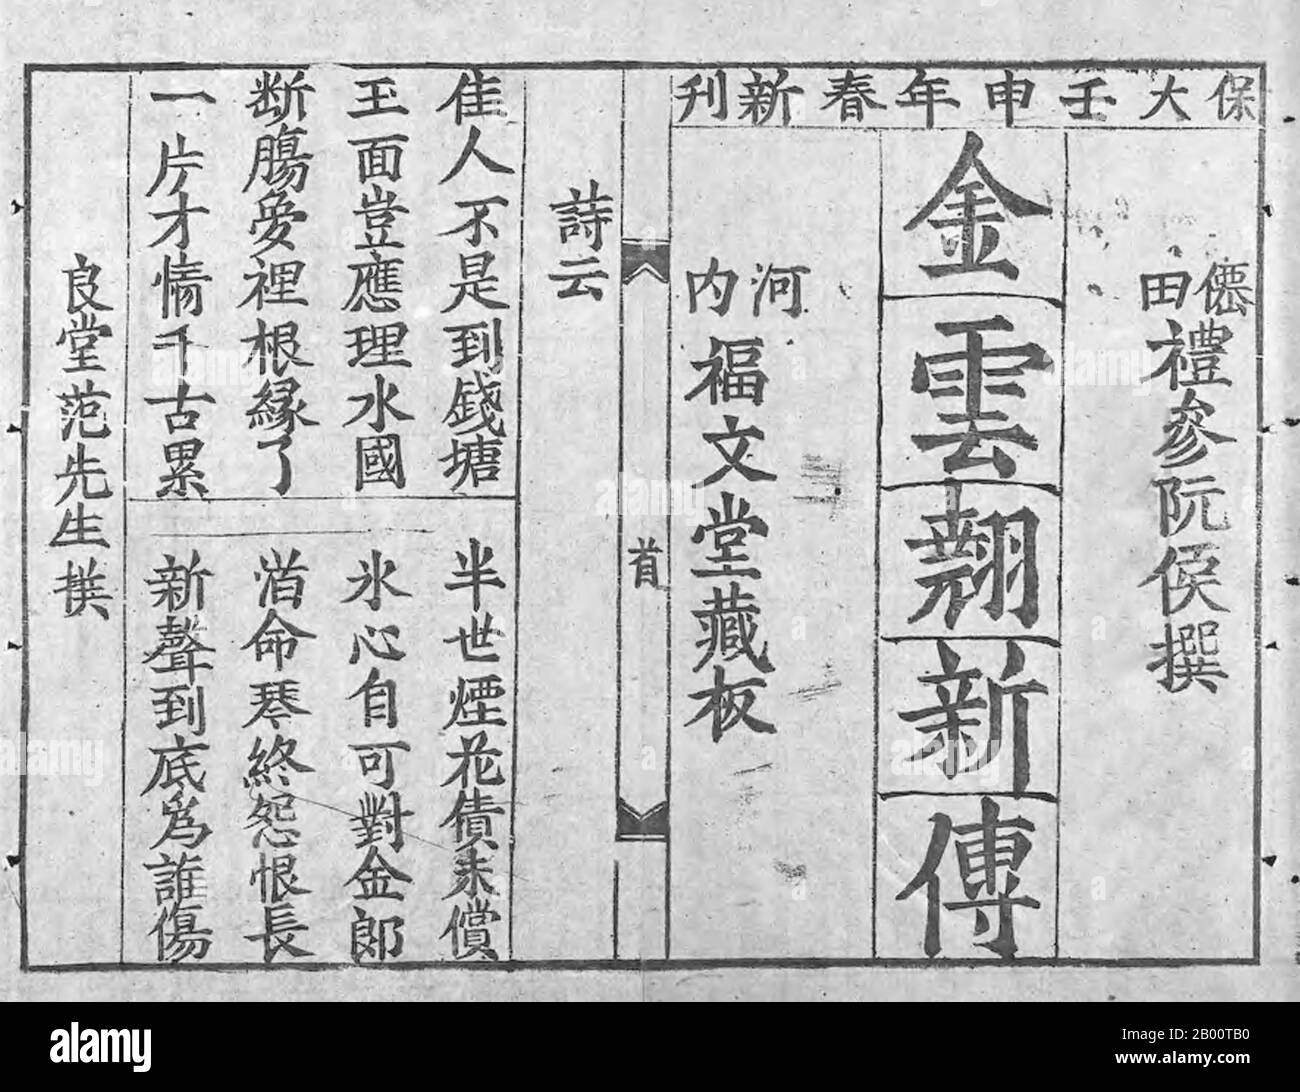 保大壬申年春新刊
僊田禮參阮侯撰
金雲翹新傳
河内福文堂藏板
首
詩云
佳人不是到錢塘
半世煙花債未償
玉面豈應埋水國
氷心自可對金郎
断腸夣裡根縁了
命琴終怨恨長
一片才情千古累
新聲到底爲誰傷
良堂范先生撰
alamy
Image ID: 2B00TB0
www.alamy.com